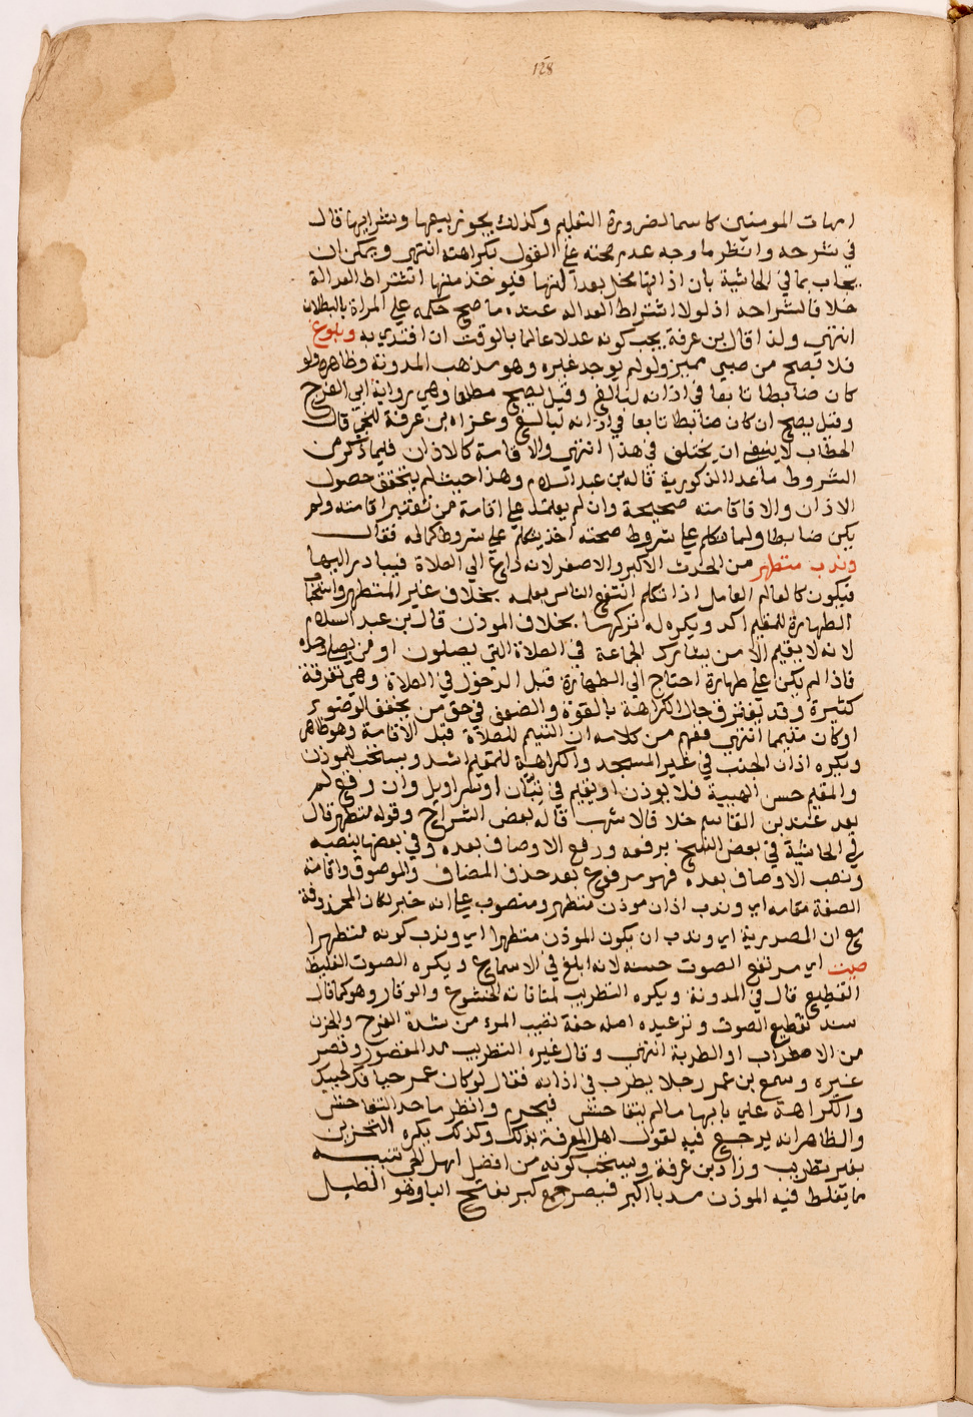 128
امهات المومنين كاسما لضرورة التعليم وكذلك يجوز بيعها وشرايها قال
في شرحه وانظر ما وجه عدم صحته علي القول بكراهته انتهي ويمكن ان
يجاب بما في الحاشية بان اذانها مخل بعدالتها فيوخذ منها اشتراط العدالة
خلافا لشراحه اذ لولا اشتراط العدالة عنده ما صح حكمه علي المراة بالبطلان
انتهي ولذا قال بن عرفة يجب كونه عدلا عالما بالوقت ان اقتدي به وبلوغ
فلا يصح من صبي مميز ولو لم يوجد غيره وهو مذهب المدونة وظاهره ولو
كان ضابطا تابعا في اذانه لبالغ وقيل يصح مطلقا وهي رواية ابي الفرج
وقيل يصح ان كان ضابطا تابعا في اذانه لبالغ وعزاه بن عرفة للخمي قال
الحطاب لا ينبغي ان يختلف في هذا انتهي والاقامة كالاذان فيما ذكر من
الشروط ما عدا الذكورية قاله بن عبد السلام وهذا حيث لم يتحقق حصول
الاذان والا فاقامته صحيحة وان لم يعتمد علي اقامة من تعتبر اقامته ولم
يكن ضابطا ولما تكلم علي شروط صحته اخذ يتكلم علي شروط كماله فقال
وندب متطهر من الحدث الاكبر والاصغر لانه داع الي الصلاة فيبادر اليها
فيكون كالعالم العامل اذا تكلم انتفع الناس بعلمه بخلاف غير المتطهر
الطهارة للمقيم اكد ويكره له تركها بخلاف الموذن قال بن عبد السلام
لانه لا يقيم الا من يشارك الجماعة في الصلاة التي يصلون او من يصلي
فاذا لم يكن علي طهارة احتاج الي الطهارة قبل الدخول في الصلاة وهي تفرقة
كثيرة وقد يفترق حال الكراهة بالقوة والضعف في حق من يخفف الوضوء
او كان متيمما انتهي ففهم من كلامه ان التيمم للصلاة قبل الاقامة وهو ظاهر
ويكره اذان الجنب في غير المسجد والكراهة للمقيم اشد ويستحب للموذن
والمقيم حسن الهيبة فلا يوذن او يقيم في تبان او سراويل وان وقع لم
يعد عند بن القاسم خلافا لاشهب قاله بعض الشراح وقوله متطهر قال
في الحاشية في بعض النسخ برفعه ورفع الاوصاف بعده وفي بعضها بنصبه
ونصب الاوصاف بعده فهو مرفوع بعد حذف المضاف والموصوف واقامة
الصفة مقامه اي وندب اذان موذن متطهر ومنصوب علي انه خبر لكان المحذوفة
مع ان المصدرية اي وندب ان يكون الموذن متطهرا اي وندب كونه متطهرا
صيت اي مرتفع الصوت حسنه لانه ابلغ في الاسماع ويكره الصوت الغليظ
الفظيع قال في المدونة ويكره التطريب لمنافاته الخشوع والوقار وهو كما قال
سند تقطيع الصوت وترعيده اصله خفة تصيب المرء من شدة الفرح والحزن
من الاضطراب او الطربة انتهي وقال غيره التطريب مد المقصور وقصر
غيره وسمع بن عمر رجلا يطرب في اذانه فقال لو كان عمر حيا فك لحييك
والكراهة علي بابها ما لم يتفاحش فيحرم وانظر ما حد التفاحش
والظاهر انه يرجع فيه لقول اهل المعرفة بذلك وكذلك يكره التحزين
بغير تطريب وزاد بن عرفة ويستحب كونه من افضل اهل الحي تنبيه
مما يغلط فيه الموذن مد باء اكبر فيصير جمع كبر بفتح الباء وهو الطبل